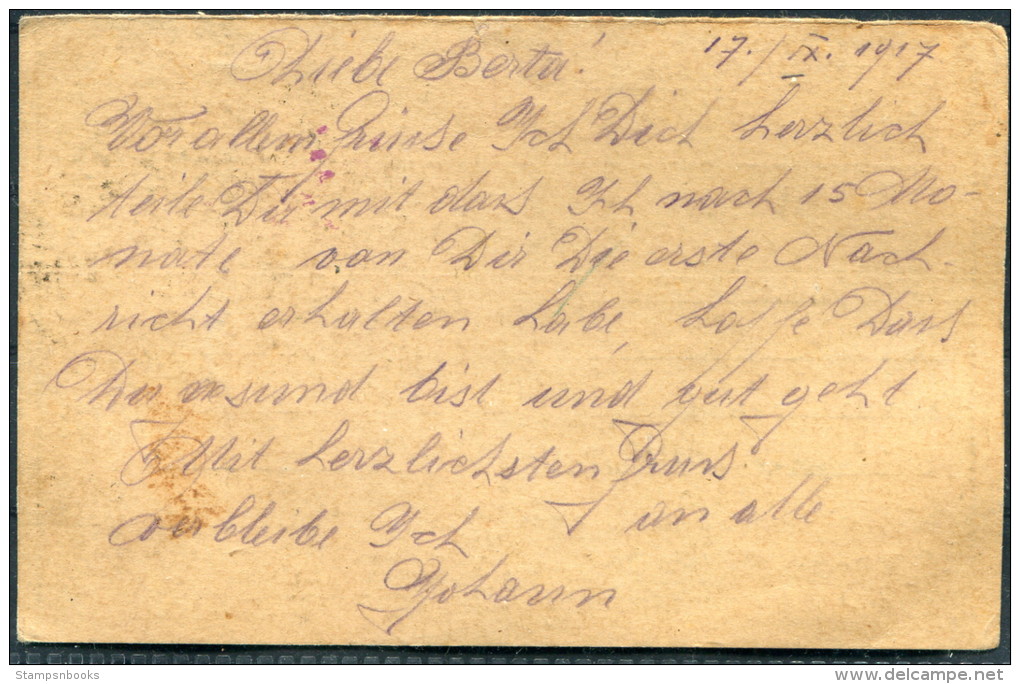 17./IX. 1917
Liebe Berta!
Vor allem Grüse Ich Dich herzlich
teile Dir mit dass Ich nach 15 Mo-
nate von Dir Die erste Nach-
richt erhalten habe, hoffe Dass
Du gesund bist und gut geht
Mit herzlichsten Gruss
an alle
verbleibe Ich
Johann
Stampsnbooks
delcampe.net